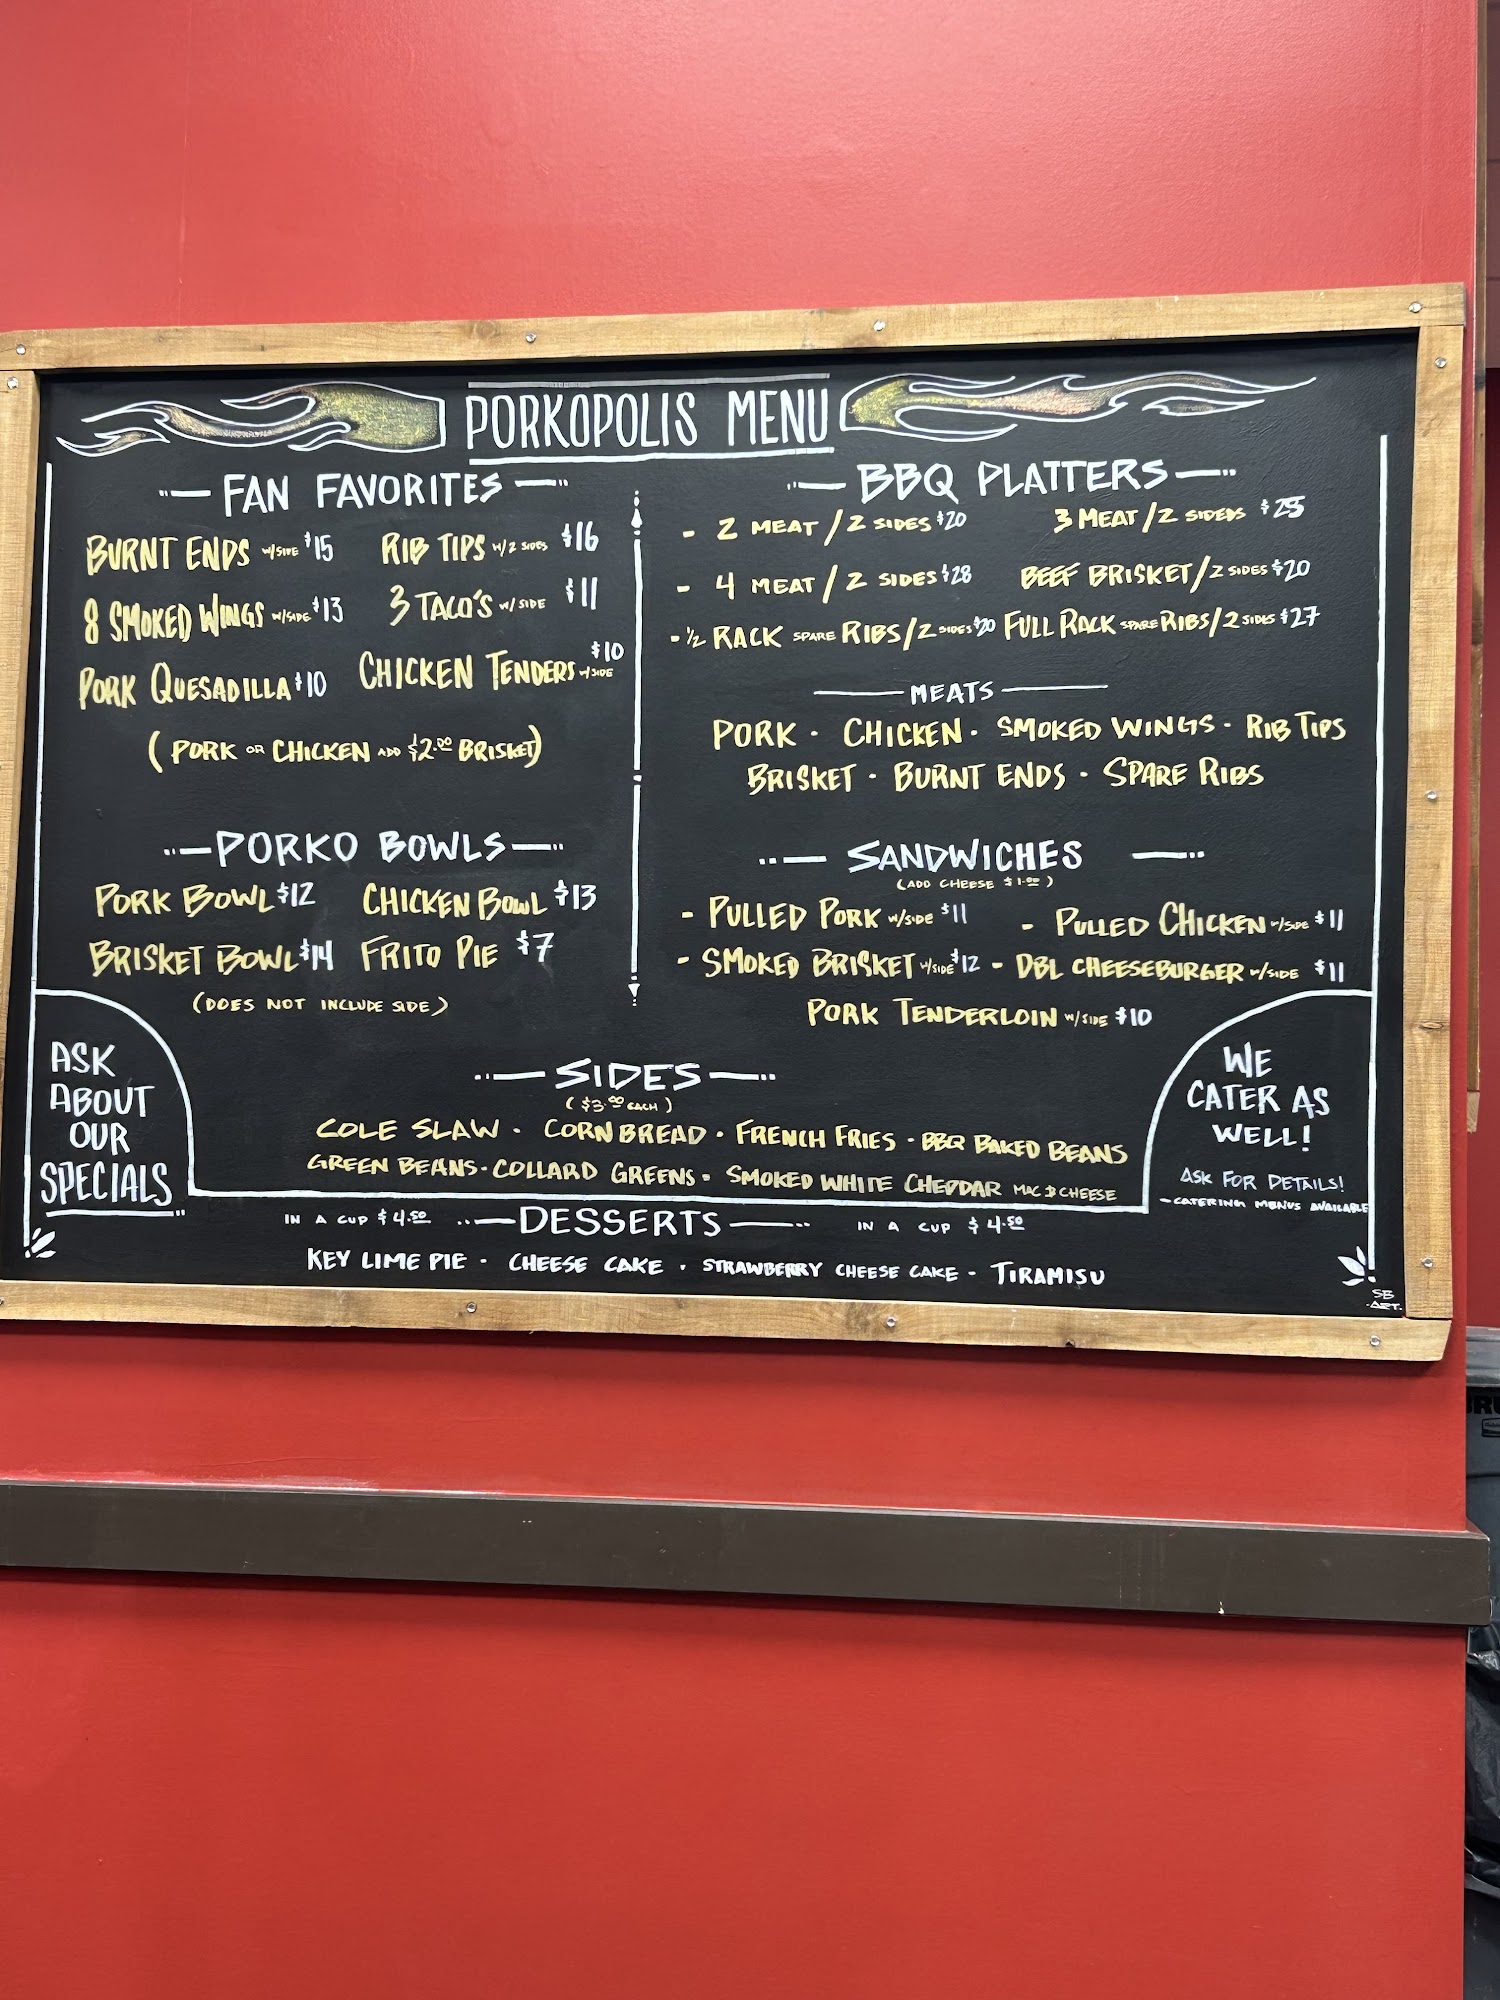 PORKOPOLIS MENU
FAN FAVORITES
BURNT ENDS W/SIDE $15
RIB TIPS W/2 SIDES $16
8 SMOKED WINGS W/SIDE $13
3 TACO'S W/SIDE $11
PORK QUESADILLA $10
CHICKEN TENDERS W/SIDE $10
(PORK OR CHICKEN ADD $2.00 BRISKET)
PORKO BOWLS
PORK BOWL $12
CHICKEN BOWL $13
BRISKET BOWL $14
FRITO PIE $7
(DOES NOT INCLUDE SIDE)
BBQ PLATTERS
- 2 MEAT / 2 SIDES $20
3 MEAT / 2 SIDEDS $25
- 4 MEAT / 2 SIDES $28
BEEF BRISKET / 2 SIDES $20
- ½ RACK SPARE RIBS / 2 SIDES $20
FULL RACK SPARE RIBS / 2 SIDES $27
MEATS
PORK · CHICKEN · SMOKED WINGS · RIB TIPS
BRISKET · BURNT ENDS · SPARE RIBS
SANDWICHES
(ADD CHEESE $1.00)
- PULLED PORK W/SIDE $11
- PULLED CHICKEN W/SIDE $11
- SMOKED BRISKET W/SIDE $12
- DBL CHEESEBURGER W/SIDE $11
PORK TENDERLOIN W/SIDE $10
SIDES
($3.00 EACH)
COLE SLAW · CORN BREAD · FRENCH FRIES · BBQ BAKED BEANS
GREEN BEANS · COLLARD GREENS · SMOKED WHITE CHEDDAR MAC & CHEESE
IN A CUP $4.50 DESSERTS IN A CUP $4.50
KEY LIME PIE · CHEESE CAKE · STRAWBERRY CHEESE CAKE - TIRAMISU
ASK
ABOUT
OUR
SPECIALS
WE
CATER AS
WELL!
ASK FOR DETAILS!
- CATERING MENUS AVAILABLE
SB
-ART-